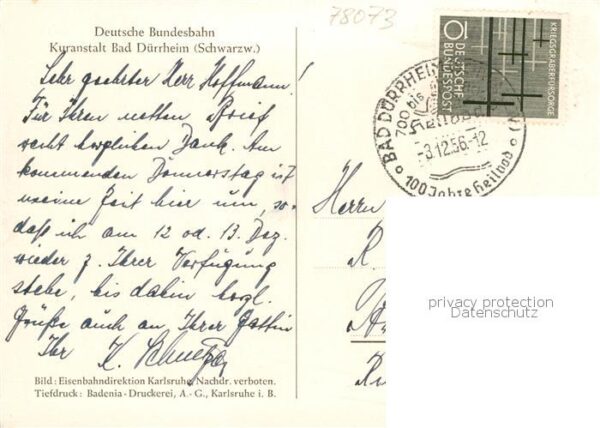 Deutsche Bundesbahn
Kuranstalt Bad Dürrheim (Schwarzw.)
78073
Sehr geehrter Herr Hoffmann!
Für Ihren netten Brief
recht herzlichen Dank. Am
kommenden Donnerstag ist
meine Zeit hier um, so-
daß ich am 12 od. 13. Dez.
wieder z. Ihrer Verfügung
stehe, bis dahin hrzl.
Grüße auch an Ihrer Gattin
Ihr K.
Bild: Eisenbahndirektion Karlsruhe, Nachdr. verboten.
Tiefdruck: Badenia-Druckerei, A.-G., Karlsruhe i. B.
KRIEGSGRÄBERFÜRSORGE
10 DEUTSCHE
BUNDESPOST
BAD DÜRRHEIM
700 bis
-3.12.56.-12
100 Jahre Heilbad
Herrn
R
privacy protection
Datenschutz